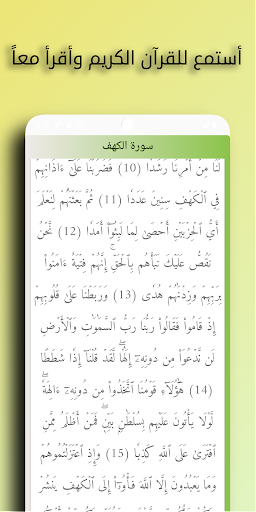 أستمع للقرآن الكريم وأقرأ معاً
سورة الكهف
لَنَا مِنْ أَمْرِنَا رَشَدًا (10) فَضَرَبْنَا عَلَىٰٓ ءَاذَانِهِمْ
فِى ٱلْكَهْفِ سِنِينَ عَدَدًا (11) ثُمَّ بَعَثْنَٰهُمْ لِنَعْلَمَ
أَىُّ ٱلْحِزْبَيْنِ أَحْصَىٰ لِمَا لَبِثُوٓا۟ أَمَدًا (12) نَّحْنُ
نَقُصُّ عَلَيْكَ نَبَأَهُم بِٱلْحَقِّ ۚ إِنَّهُمْ فِتْيَةٌ ءَامَنُوا۟
بِرَبِّهِمْ وَزِدْنَٰهُمْ هُدًى (13) وَرَبَطْنَا عَلَىٰ قُلُوبِهِمْ
إِذْ قَامُوا۟ فَقَالُوا۟ رَبُّنَا رَبُّ ٱلسَّمَٰوَٰتِ وَٱلْأَرْضِ
لَن نَّدْعُوَا۟ مِن دُونِهِۦٓ إِلَٰهًا ۖ لَّقَدْ قُلْنَآ إِذًا شَطَطًا
(14) هَٰٓؤُلَآءِ قَوْمُنَا ٱتَّخَذُوا۟ مِن دُونِهِۦٓ ءَالِهَةً ۖ
لَّوْلَا يَأْتُونَ عَلَيْهِم بِسُلْطَٰنٍۭ بَيِّنٍ ۖ فَمَنْ أَظْلَمُ مِمَّنِ
ٱفْتَرَىٰ عَلَى ٱللَّهِ كَذِبًا (15) وَإِذِ ٱعْتَزَلْتُمُوهُمْ
وَمَا يَعْبُدُونَ إِلَّا ٱللَّهَ فَأْوُۥٓا۟ إِلَى ٱلْكَهْفِ يَنشُرْ